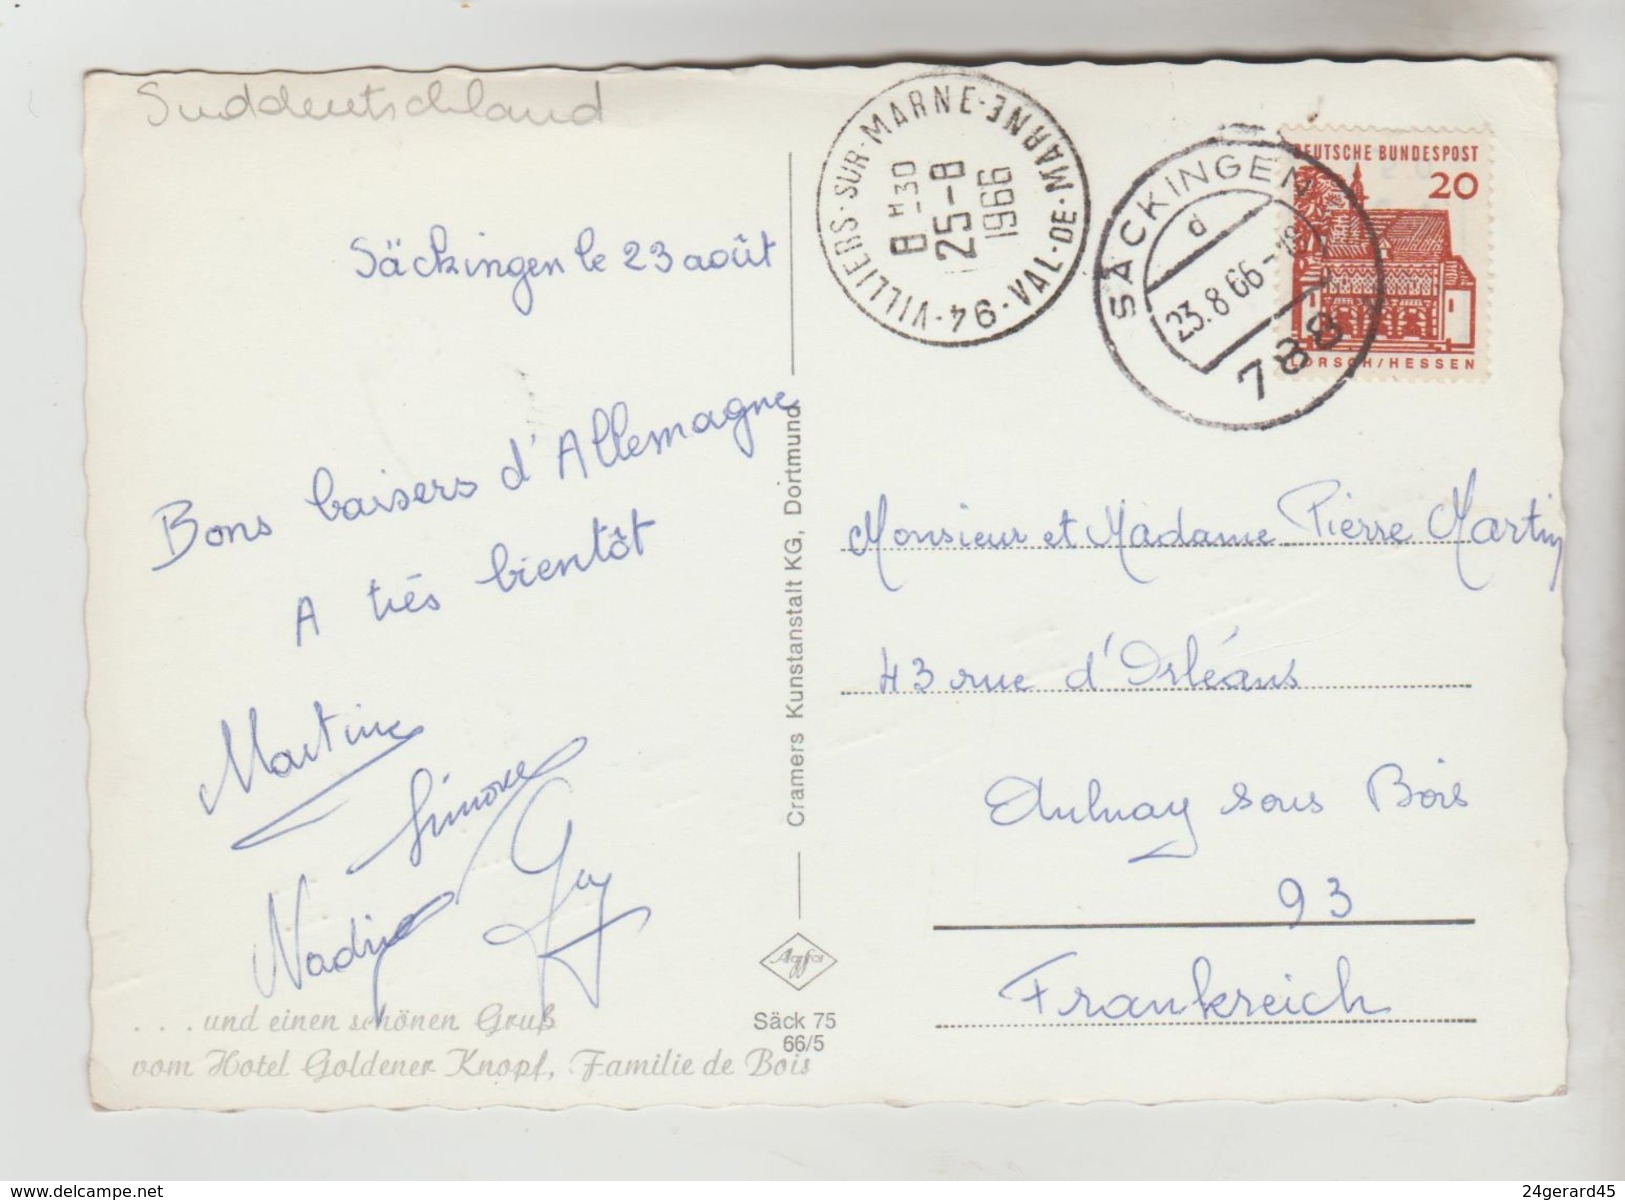 Suddeutschland
Säckingen le 23 août
Bons baisers d'Allemagne
A très bientôt
Martine
Simone
Nadine
Guy
. . . und einen schönen Gruß
vom Hotel Goldener Knopf, Familie de Bois
Cramers Kunstanstalt KG, Dortmund
Agfa
Säck 75
66/5
94 - VILLIERS-SUR-MARNE - VAL-DE-MARNE
8 H 30
25-8
1966
SÄCKINGEN
d
23.8.66-18
788
DEUTSCHE BUNDESPOST
20
LORSCH/HESSEN
Monsieur et Madame Pierre Martin
43 rue d'Orléans
Aulnay sous Bois
93
Frankreich
delcampe.net
24gerard45